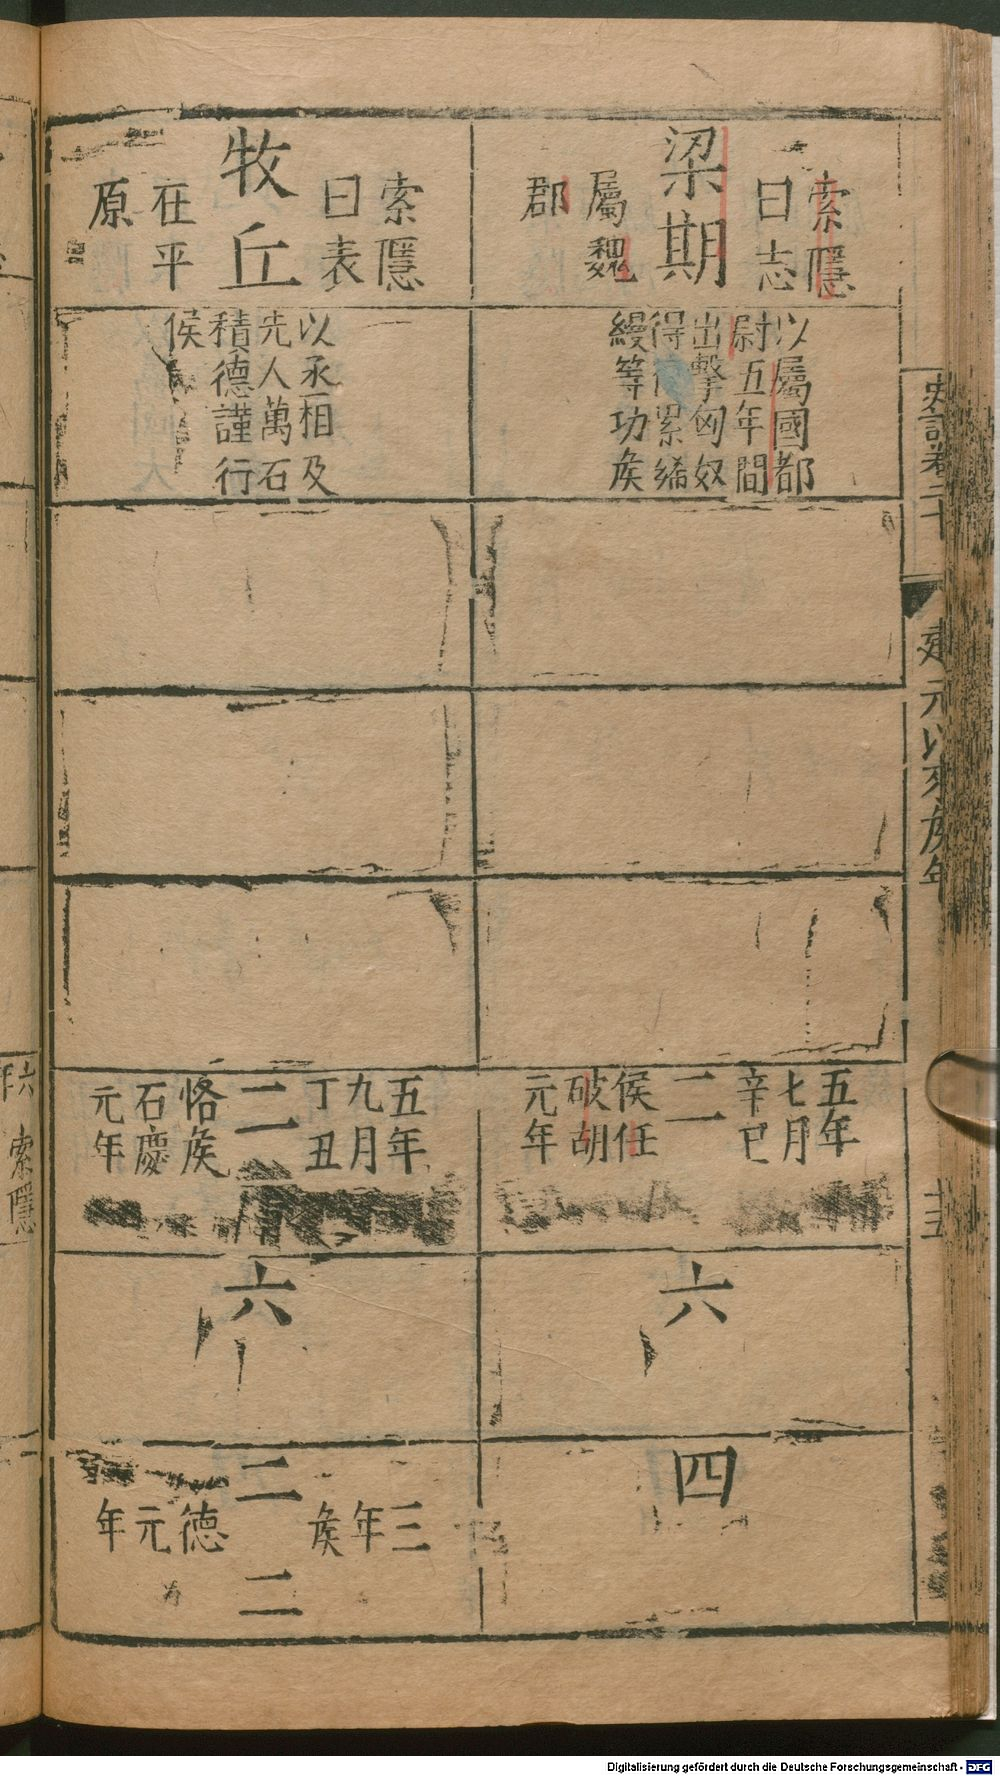 史記卷二十
建元以來侯年
十五
梁期
索隱
曰志
屬魏
郡
以屬國都
尉五年間
出擊匈奴
得復累絺
縵等功侯
五年
七月
辛巳
二
侯任
破胡
元年
六
四
牧丘
索隱
曰表
在平
原
以丞相及
先人萬石
積德謹行
侯
五年
九月
丁丑
二
恪侯
石慶
元年
六
二
三年
侯
德
元
年
二
六年
索隱
Digitalisierung gefördert durch die Deutsche Forschungsgemeinschaft - DFG